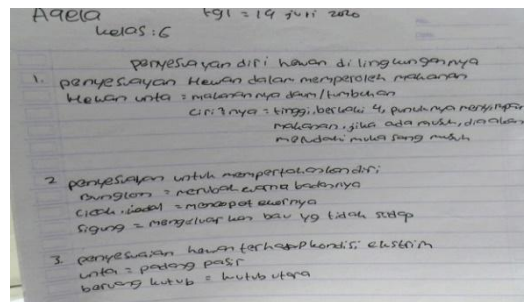 Aqela tgl = 19 juli 2020
kelas : 6
penyesuayan diri hewan di lingkungannya
1. penyesuayan Hewan dalam memperoleh makanan
Hewan unta = makanannya daun/tumbuhan
ciri²nya = tinggi, berkaki 4, punuknya menyimpan
makanan, jika ada musuh, dia akan
meludahi muka sang musuh
2 penyesuayan untuk mempertahankan diri
Bunglon = merubah warna badannya
cicak, kadal = mencopot ekornya
sigung = mengeluarkan bau yg tidak sedap
3. penyesuaian hewan terhadap kondisi ekstrim
unta = padang pasir
beruang kutub = kutub utara